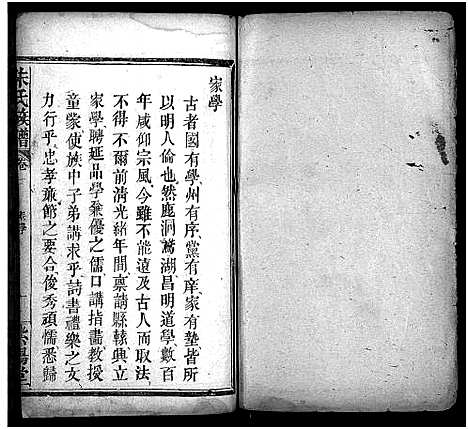 家學
古者國有學州有序黨有庠家有塾皆所
以明人倫也然鹿洞鵞湖昌明道學數百
年咸仰宗風今雖不能遠及古人而取法
不得不爾前清光緒年間稟請縣轅興立
家學聘延品學兼優之儒口講指畫教授
童蒙使族中子弟講求乎詩書禮樂之文
力行乎忠孝廉節之要合俊秀頑懦悉歸
朱氏族譜 卷 家學 一